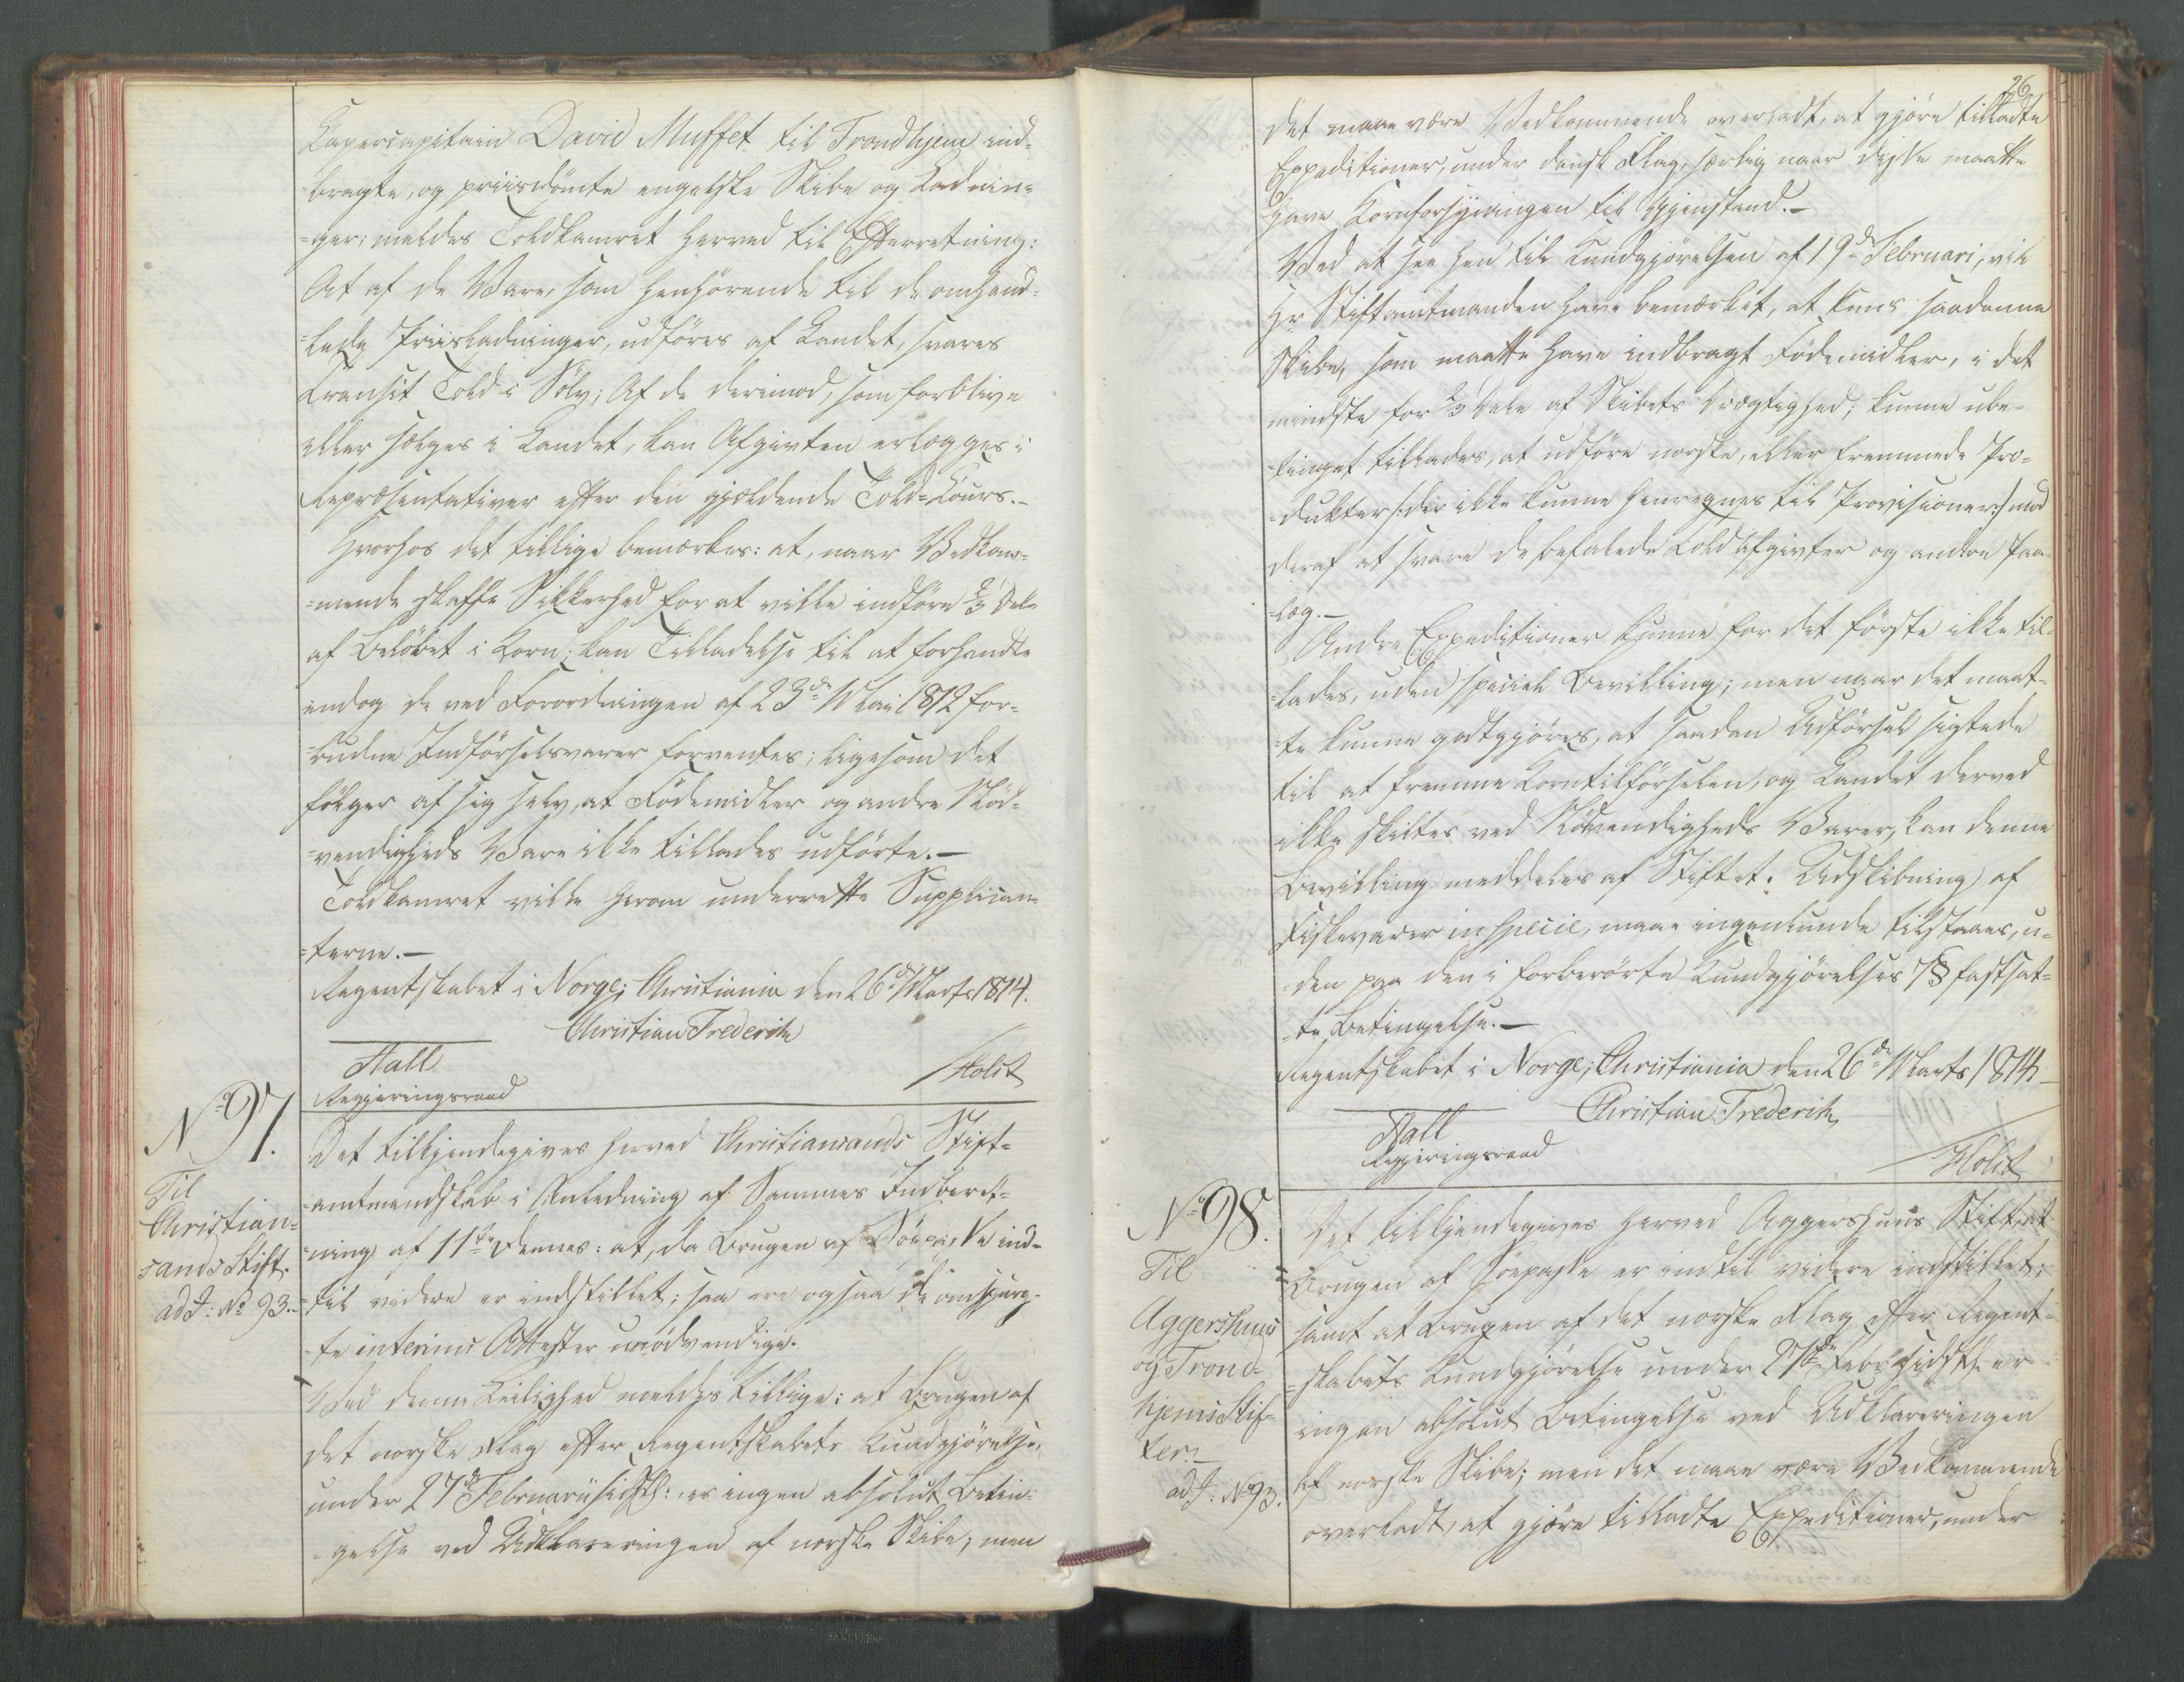 Kapercapitain David Muffet til Trondhjem ind-
-bragte, og priisdömte engelske Skibe og Ladnin-
=ger; meldes Toldkamret herved til Efterretning:
At af de Vare, som henhörende til de omhand-
=lede Priisladninger, udföres af Landet, svares
Transit Told i Sölv; Af de derimod, som forblive
eller sælges i Landet, kan Afgivten erlægges i
Repræsentativer efter den gjældende Told-Cours.-
Hvorhos det tillige bemærkes: at, naar Vedkom-
=mende skaffe Sikkerhed for at ville indföre 2/3 Dele
af Belöbet i Korn; kan Tilladelse til at forhandle
endog de ved Forordningen af 23de Mai 1812 for-
=budne Indförselsvarer forventes; ligesom det
fölger af sig selv, at Födemidler og andre Nöd-
=vendigheds Vare ikke tillades udförte.-
Toldkamret ville herom underrette Supplican-
=terne.-
Regentskabet i Norge; Christiania den 26de Marts 1814.
Christian Frederik
Hall
Regjeringsraad
Holst
No 97.
Til
Christian-
sands Stift.
ad J: No 93.-
Det tilkjendegives herved Christiansands Stift-
=amtmandskab i Anledning af Sammes Indberet-
=ning af 11te dennes: at, da Brugen af Söepasse ind-
=til videre er indstillet; saa ere ogsaa de omspurg-
=te interims Attester unödvendige.
Ved denne Leilighed meldes tillige: at Brugen af
det norske Flag efter Regentskabets Kundgjörelse,
under 27de Februarii sidstl: er ingen absolut Betin-
=gelse ved Udklareringen af norske Skibe; men
26
det maae være Vedkommende overladt, at gjöre tilladte
Expeditioner, under dansk Flag, særlig naar disse maatte
have Kornforsyningen til Gjenstand.-
Ved at see hen til Kundgjörelsen af 19de Februari, vil
Hr Stiftamtmanden have bemærket, at kuns saadanne
Skibe, som maatte have indbragt Födemidler, i det
mindste for 2/3 Dele af Skibets Drægtighed; kunne ube-
=tinget tillades, at udföre norske, eller fremmede Pro-
=dukter /: der ikke kunne henregnes til Provisioner :/ mod
deraf at svare de befalede Toldafgivter og andre Paa-
=læg.-
Andre Expeditioner kunne for det förste ikke til-
=lades, uden speciel Bevilling; men naar det maat-
=te kunne godtgjöres, at saadan Udförsel sigtede
til at fremme Korntilförselen, og Landet derved
ikke skiltes ved Nödvendigheds Varer, kan denne
Bevilling meddeles af Stiftet. Udskibning af
Fiskevarer in specie, maae ingenlunde tilstaaes, u-
=den paa den i forberörte Kundgjörelses 7§ fastsat-
=te Betingelse.-
Regentskabet i Norge; Christiania den 26de Marts 1814
Christian Frederik
Hall
Regjeringsraad
Holst
No 98.
Til
Aggershuus
og Trond-
hjems Stif-
ter.-
ad J: No 93.
Det tilkjendegives herved Aggershuus Stift at
Brugen af Söepasse er indtil videre indstillet;
samt at Brugen af det norske Flag efter Regent-
=skabets Kundgjörelse under 27de Febr sidstl: er
ingen absolut Betingelse ved Udklareringen
af norske Skibe; men det maae være Vedkommende
overladt, at gjöre tilladte Expeditioner, under